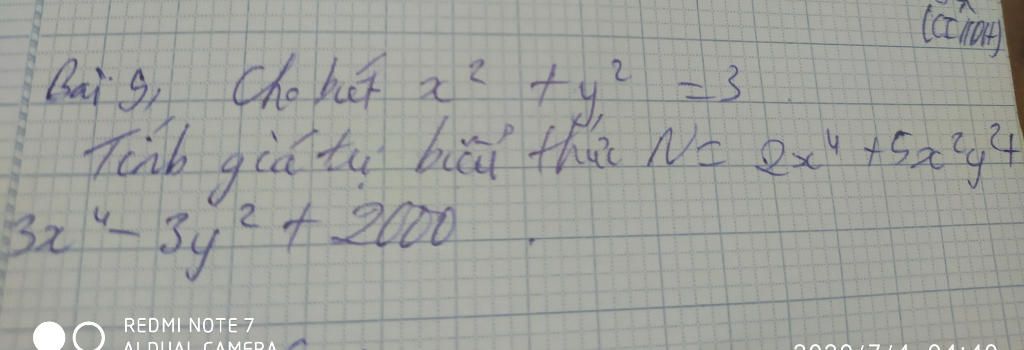 (CTTĐH)
Bài 9, Cho biết x² + y² = 3
Tính giá trị biểu thức N = 2x⁴ + 5x²y² +
3x⁴ - 3y² + 2000.
REDMI NOTE 7
AI DUAL CAMERA